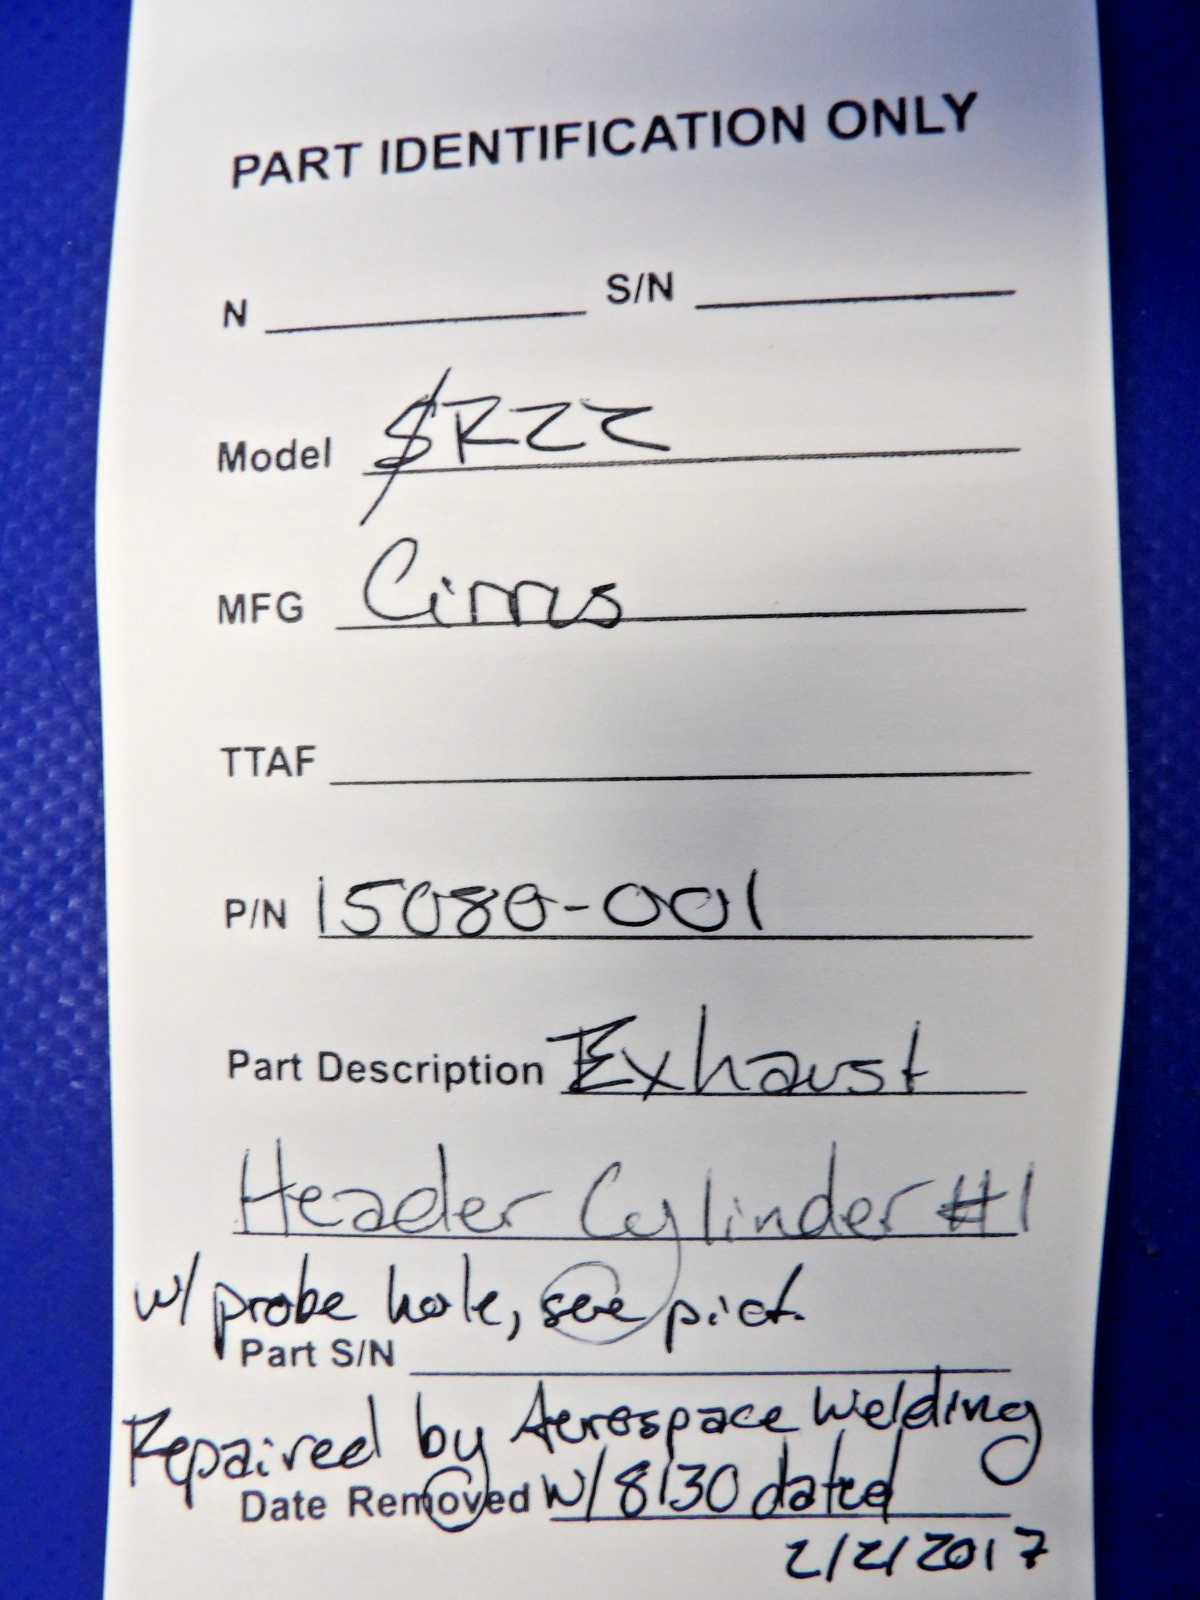 PART IDENTIFICATION ONLY
N S/N
Model SR22
MFG Cirrus
TTAF
P/N 15080-001
Part Description Exhaust
Header Cylinder #1
w/ probe hole, see pict.
Part S/N
Repaired by Aerospace Welding
Date Removed w/ 8130 dated
2/2/2017